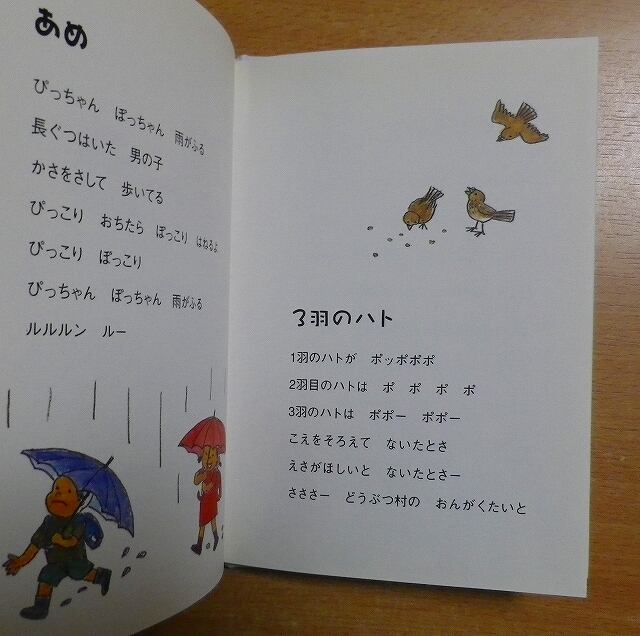 あめ
ぴっちゃん　ぽっちゃん　雨がふる
長ぐつはいた　男の子
かさをさして　歩いてる
ぴっこり　おちたら　ぽっこり　はねるよ
ぴっこり　ぽっこり
ぴっちゃん　ぽっちゃん　雨がふる
ルルルン　ルー
3羽のハト
1羽のハトが　ポッポポポ
2羽目のハトは　ポ　ポ　ポ　ポ
3羽のハトは　ポポー　ポポー
こえをそろえて　ないたとさ
えさがほしいと　ないたとさー
さささー　どうぶつ村の　おんがくたいと